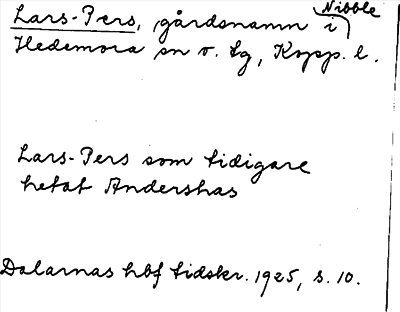 Lars-Pers, gårdsnamn i Nibble
Hedemora sn o. tg, Kopp. l.
Lars-Pers som tidigare
hetat Andershas
Dalarnas hbf tidskr. 1925, s. 10.